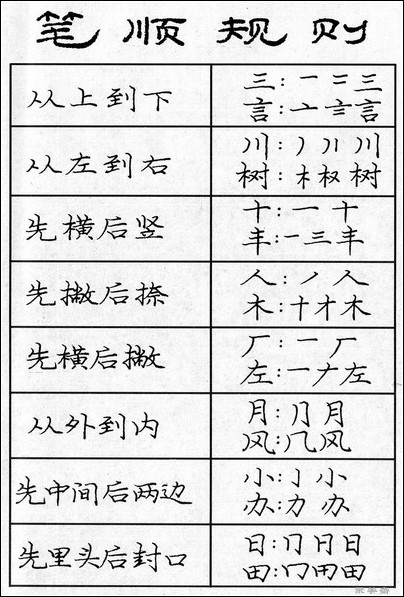 笔顺规则
从上到下
三：一 二 三
言：亠 言 言
从左到右
川：丿 丿丨 川
树：木 权 树
先横后竖
十：一 十
丰：一 三 丰
先撇后捺
人：丿 人
木：十 才 木
先横后撇
厂：一 厂
左：一 𠂇 左
从外到内
月：⺆ 月
风：几 风
先中间后两边
小：亅 小
办：力 办
先里头后封口
日：冂 日
田：冂 田